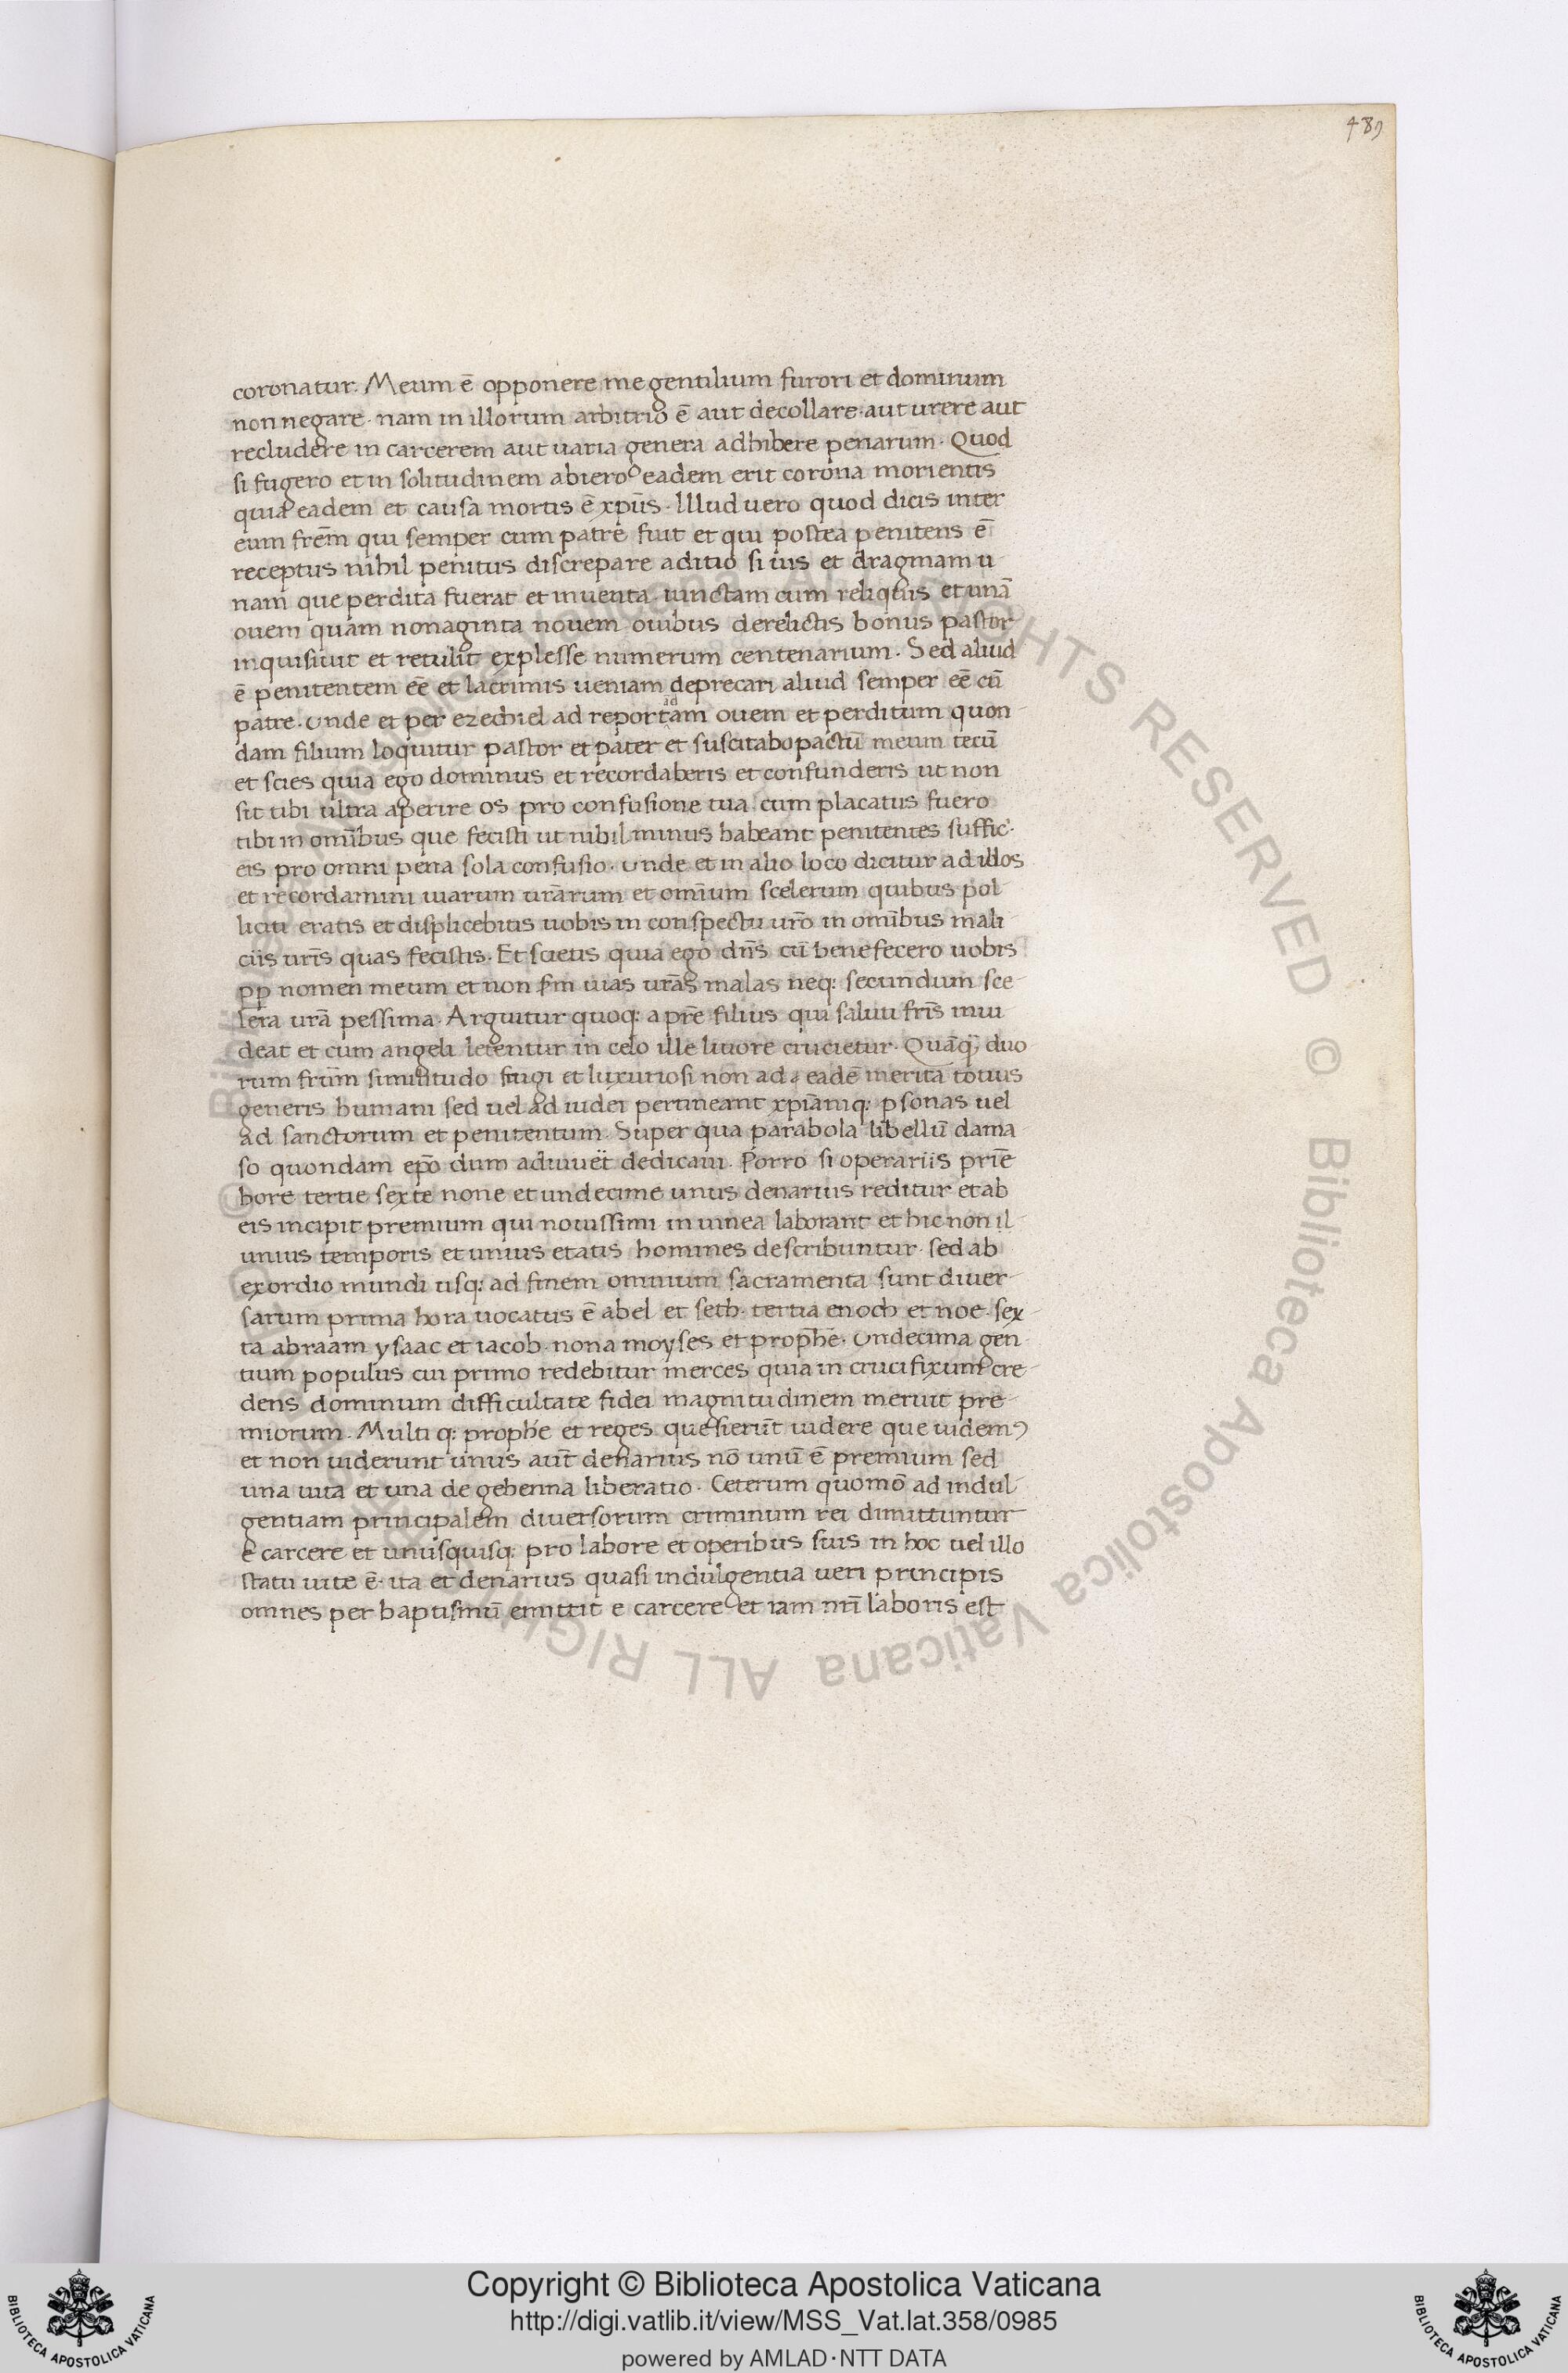 489
coronatur. Meum ē opponere me gentilium furori et dominum
non negare. nam in illorum arbitrio ē aut decollare. aut urere aut
recludere in carcerem aut uaria genera adhibere penarum. Quod
si fugero et in solitudinem abiero eadem erit corona morientis
quia eadem et causa mortis ē xp̄s. Illud uero quod dicis inter
eum frēm qui semper cum patre fuit et qui postea penitens ē
receptus nihil penitus discrepare aditio si uis et dragmam u
nam que perdita fuerat et inuenta iunctam cum reliquis et unā
ouem quam nonaginta nouem ouibus derelictis bonus pastor
inquisiuit et retulit explesse numerum centenarium. Sed aliud
ē penitentem eē et lacrimis ueniam deprecari aliud semper eē cū
patre. unde et per ezechiel ad reportatam ouem et perditum quon
dam filium loquitur pastor et pater et suscitabo pactū meum tecū
et scies quia ego dominus et recordaberis et confunderis ut non
sit tibi ultra aperire os pro confusione tua cum placatus fuero
tibi in omībus que fecisti ut nihil minus habeant penitentes suffic.
eis pro omni pena sola confusio. unde et in alio loco dicitur ad illos
et recordamini uiarum urārum et omīum scelerum quibus pol
liciti eratis et displicebitis uobis in conspectu urō in omībus mali
ciis urīs quas fecistis. Et scietis quia ego dn̄s cū benefecero uobis
pp nomen meum et non sm̄ uias urās malas neq: secundum sce
lera urā pessima. Arguitur quoq: a prē filius qui saluti frīs inui
deat et cum angeli letentur in celo ille liuore crucietur. Quāq; duo
rum frūm similitudo frugi et luxuriosi non ad eadē merita totius
generis humani sed uel ad iudei pertineant xpīamq: psonas uel
ad sanctorum et penitentum. Super qua parabola libellū dama
so quondam epō dum adiuuet dedicaui. Porro si operariis prīe
hore tertie sexte none et undecime unus denarius reditur et ab
eis incipit premium qui nouissimi in uinea laborant et hic non il
unius temporis et unius etatis homines describuntur. sed ab
exordio mundi usq: ad finem omnium sacramenta sunt diuer
sarum prima hora uocatus ē abel et seth. tertia enoch et noe. sex
ta abraam ysaac et iacob. nona moyses et prophē. Undecima gen
tium populus cui primo redebitur merces quia in crucifixum cre
dens dominum difficultate fidei magnitudinem meruit pre
miorum. Multi q: prophē et reges quesierūt uidere que uidemꝰ
et non uiderunt unus aūt denarius nō unū ē premium sed
una uita et una de gehenna liberatio. Ceterum quomō ad indul
gentiam principalem diuersorum criminum rei dimittuntur
e carcere et unusquisq: pro labore et operibus suis in hoc uel illo
statu uite ē. ita et denarius quasi indulgentia ueri principis
omnes per baptismū emittit e carcere et iam nrī laboris est
Copyright © Biblioteca Apostolica Vaticana
http://digi.vatlib.it/view/MSS_Vat.lat.358/0985
powered by AMLAD·NTT DATA